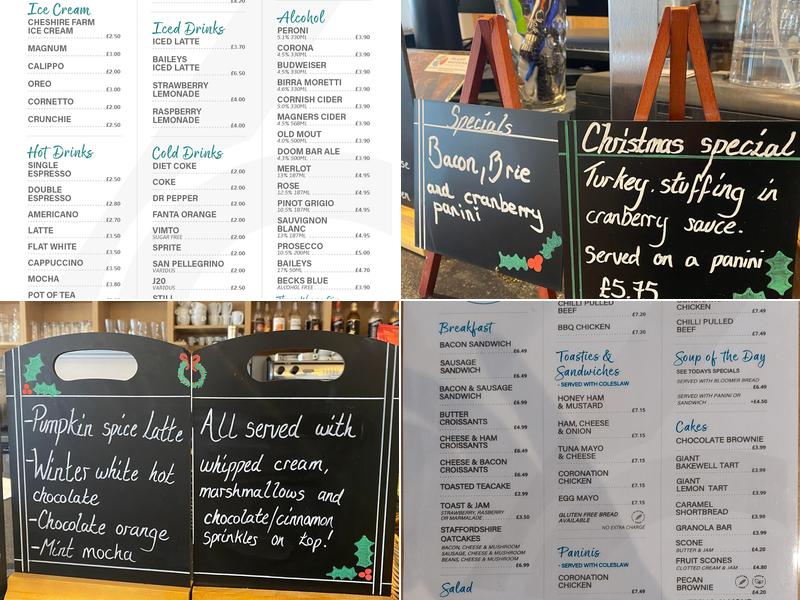 Ice Cream
CHESHIRE FARM
ICE CREAM £2.50
MAGNUM £3.00
CALIPPO £2.00
OREO £3.00
CORNETTO £2.00
CRUNCHIE £2.50
Hot Drinks
SINGLE
ESPRESSO £2.50
DOUBLE
ESPRESSO £2.80
AMERICANO £2.70
LATTE £3.50
FLAT WHITE £3.50
CAPPUCCINO £3.50
MOCHA £3.80
POT OF TEA
Iced Drinks
ICED LATTE £3.70
BAILEYS
ICED LATTE £6.50
STRAWBERRY
LEMONADE £4.00
RASPBERRY
LEMONADE £4.00
Cold Drinks
DIET COKE £2.00
COKE £2.00
DR PEPPER £2.00
FANTA ORANGE £2.00
VIMTO
SUGAR FREE £2.00
SPRITE £2.00
SAN PELLEGRINO
VARIOUS £2.00
J20
VARIOUS £2.50
STILL
Alcohol
PERONI
5.1% 330ML £3.90
CORONA
4.5% 330ML £3.90
BUDWEISER
4.5% 330ML £3.90
BIRRA MORETTI
4.6% 330ML £3.90
CORNISH CIDER
5.0% 330ML £3.90
MAGNERS CIDER
4.5% 568ML £3.90
OLD MOUT
4.0% 500ML £3.90
DOOM BAR ALE
4.3% 500ML £3.90
MERLOT
13% 187ML £4.95
ROSE
12.5% 187ML £4.95
PINOT GRIGIO
10.5% 187ML £4.95
SAUVIGNON
BLANC
13% 187ML £4.95
PROSECCO
10.5% 200ML £5.00
BAILEYS
17% 50ML £4.70
BECKS BLUE
ALCOHOL FREE £3.90
Specials
Bacon, Brie
and cranberry
panini
Christmas special
Turkey. stuffing in
cranberry sauce.
Served on a panini
£5.75
-Pumpkin spice latte
-Winter white hot
chocolate
-Chocolate orange
-Mint mocha
All served with
whipped cream,
marshmallows and
chocolate/cinnamon
sprinkles on top!
Breakfast
BACON SANDWICH £6.49
SAUSAGE
SANDWICH £6.49
BACON & SAUSAGE
SANDWICH £6.99
BUTTER
CROISSANTS £4.99
CHEESE & HAM
CROISSANTS £6.49
CHEESE & BACON
CROISSANTS £6.49
TOASTED TEACAKE £2.99
TOAST & JAM
STRAWBERRY, RASPBERRY
OR MARMALADE £3.50
STAFFORDSHIRE
OATCAKES
BACON, CHEESE & MUSHROOM
SAUSAGE, CHEESE & MUSHROOM
BEANS, CHEESE & MUSHROOM £6.99
Salad
CHILLI PULLED
BEEF £7.20
BBQ CHICKEN £7.20
Toasties &
Sandwiches
- SERVED WITH COLESLAW
HONEY HAM
& MUSTARD £7.15
HAM, CHEESE
& ONION £7.15
TUNA MAYO
& CHEESE £7.15
CORONATION
CHICKEN £7.15
EGG MAYO £7.15
GLUTEN FREE BREAD
AVAILABLE
NO EXTRA CHARGE
Paninis
- SERVED WITH COLESLAW
CORONATION
CHICKEN £7.49
CHICKEN £7.49
CHILLI PULLED
BEEF £7.49
Soup of the Day
SEE TODAYS SPECIALS
SERVED WITH BLOOMER BREAD £6.49
SERVED WITH PANINI OR
SANDWICH +£4.50
Cakes
CHOCOLATE BROWNIE £3.99
GIANT
BAKEWELL TART £3.99
GIANT
LEMON TART £3.99
CARAMEL
SHORTBREAD £3.99
GRANOLA BAR £3.99
SCONE
BUTTER & JAM £4.20
FRUIT SCONES
CLOTTED CREAM & JAM £4.80
PECAN
BROWNIE £4.20